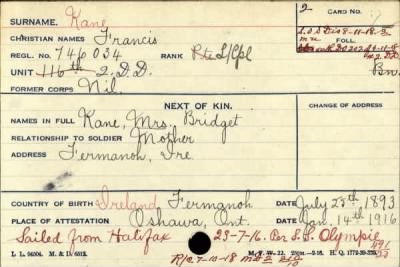 SURNAME. Kane
2 CARD NO.
CHRISTIAN NAMES Francis
S.O.S Dis 8-11-18
FOLL.
REGL. NO. 746034 RANK Pte L/Cpl
UNIT 116th 2.D.D.
FORMER CORPS Nil.
NEXT OF KIN. CHANGE OF ADDRESS
NAMES IN FULL Kane, Mrs. Bridget
RELATIONSHIP TO SOLDIER Mother
ADDRESS Fermanoh, Ire
COUNTRY OF BIRTH Ireland Fermanoh DATE July 25th 1893
PLACE OF ATTESTATION Oshawa, Ont. DATE Jan. 14th 1916
Sailed from Halifax 23-7-16. Per S.S. Olympic
L. L. M. & D. R/C 7-10-18 M. F. W. 22. H. Q.